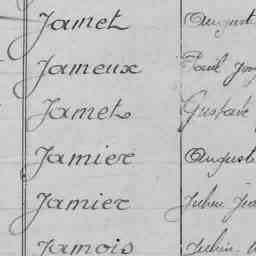 Jamet Auguste
Jameux Paul
Jamet Gustave
Jamier Auguste
Jamier Julien
Jamois Julien